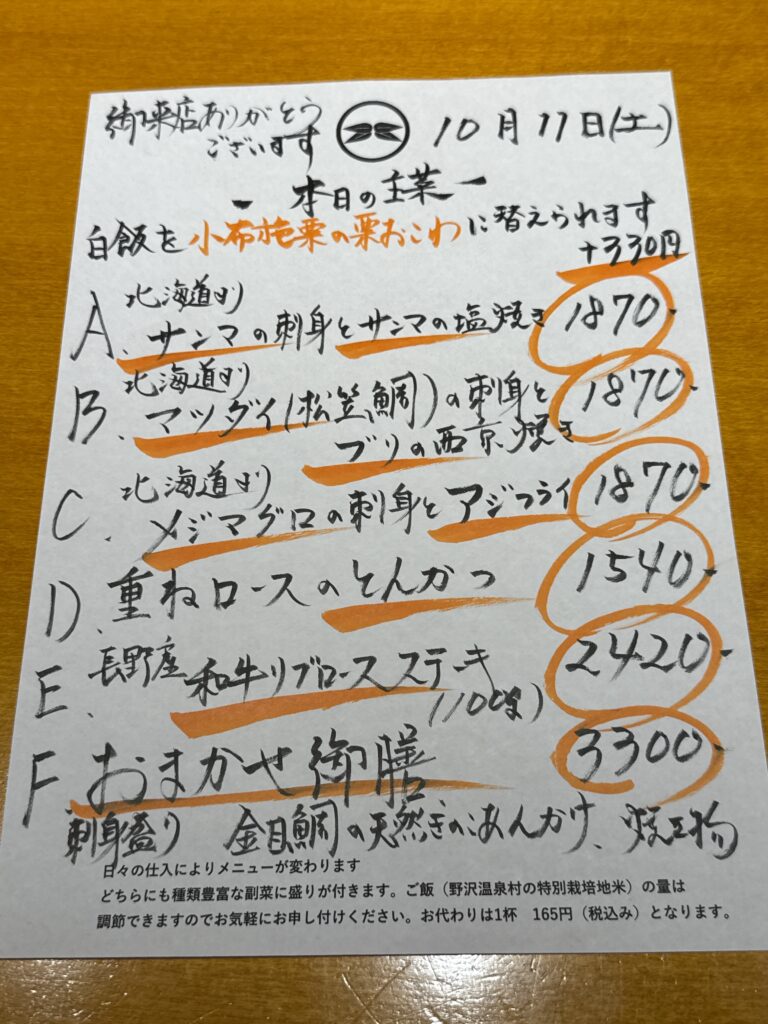 御来店ありがとう
ございます
10月11日(土)
ー 本日の主菜 ー
白飯を小布施栗の栗おこわに替えられます
+330円
A、北海道より
サンマの刺身とサンマの塩焼き 1870-
B、北海道より
マツダイ(松笠鯛)の刺身と
ブリの西京焼き 1870-
C、北海道より
メジマグロの刺身とアジフライ 1870-
D、重ねロースのとんかつ 1540-
E、長野産 和牛リブロースステーキ 2420-
F、おまかせ御膳 3300-
刺身盛り 金目鯛の天然きのこあんかけ、焼き物
日々の仕入によりメニューが変わります
どちらにも種類豊富な副菜に盛りが付きます。ご飯（野沢温泉村の特別栽培地米）の量は
調節できますのでお気軽にお申し付けください。お代わりは1杯　165円（税込み）となります。